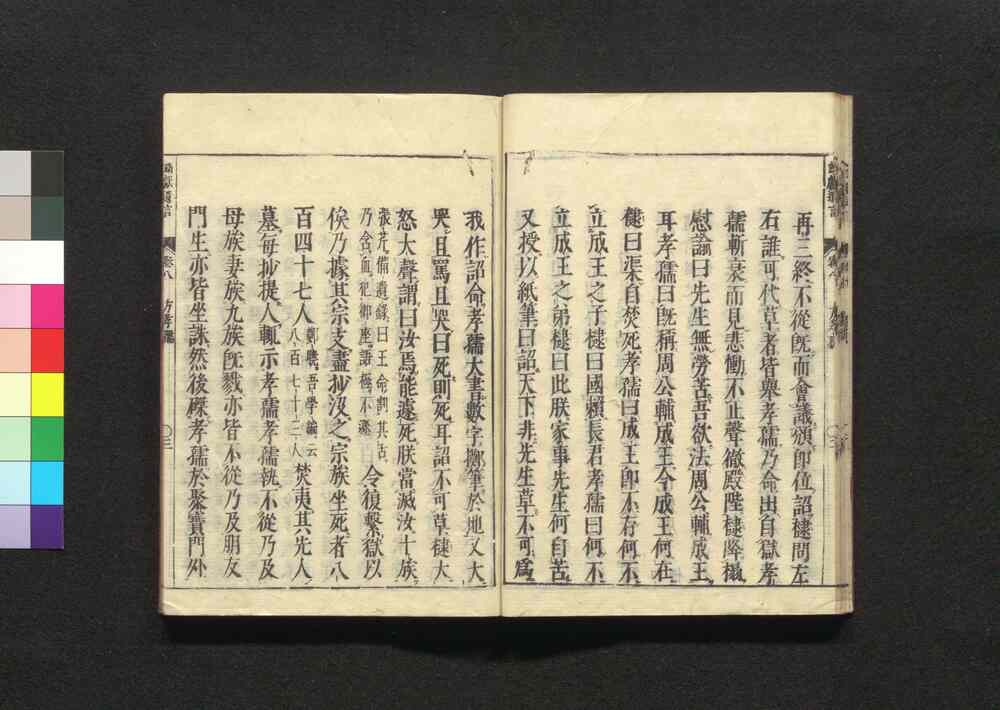 再三終不從既而會議頒即位詔棣問左
右誰可代草者皆舉孝孺乃命出自獄孝
孺斬衰而見悲慟不止聲徹殿陛棣降榻
慰諭曰先生無勞苦吾欲法周公輔成王
耳孝孺曰既稱周公輔成王今成王何在
棣曰渠自焚死孝孺曰成王即不存何不
立成王之子棣曰國賴長君孝孺曰何不
立成王之弟棣曰此朕家事先生何自苦
又授以紙筆曰詔天下非先生草不可爲
我作詔命孝孺大書數字擲筆於地又大
哭且罵且哭曰死則死耳詔不可草棣大
怒大聲謂曰汝焉能遽死朕當滅汝十族
張芹備遺錄曰王命割其舌
乃含血犯御座語極不遜
令復繋獄以
俟乃據其宗支盡抄沒之宗族坐死者八
百四十七人
鄭曉吾學編云
八百七十三人
焚夷其先人
墓每抄提人輒示孝孺孝孺執不從乃及
母族妻族九族既戮亦皆不從乃及朋友
門生亦皆坐誅然後磔孝孺於聚寶門外
卷八
方孝孺
〇三